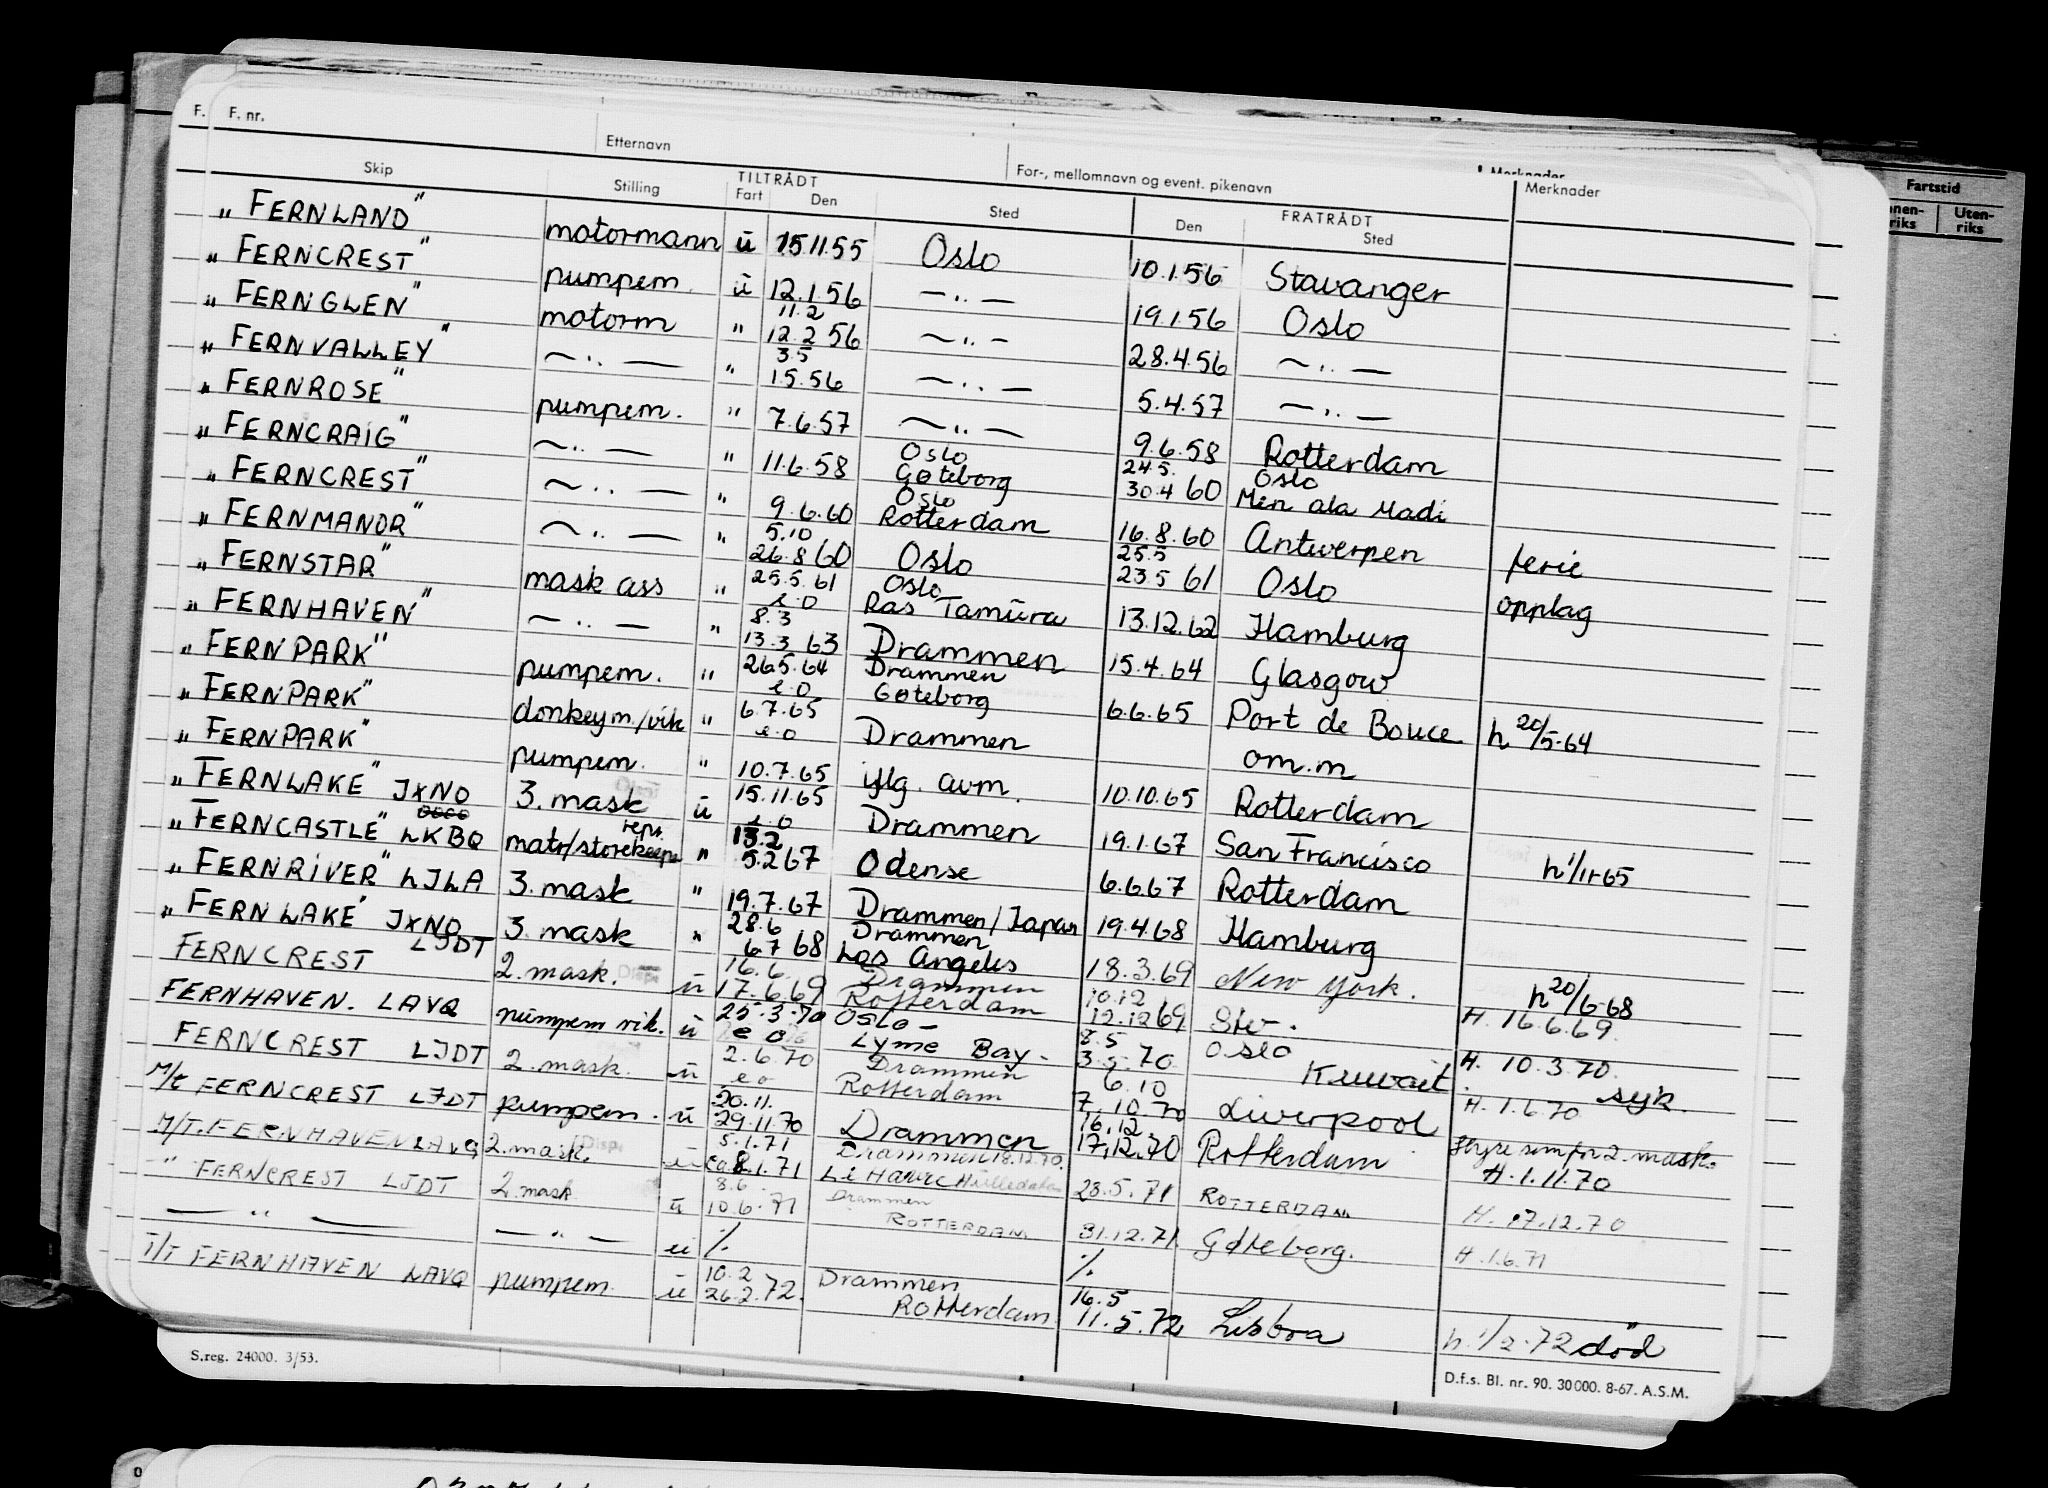 F. F. nr. Etternavn For-, mellomnavn og event. pikenavn Merknader
Skip Stilling TILTRÅDT Fart Den Sted FRATRÅDT Den Sted Merknader Fartstid
Uten-riks
„ FERNLAND" motormann ū 15.11.55 Oslo 10.1.56 Stavanger
„ FERNCREST" pumpem. ū 12.1.56 —„— 19.1.56 Oslo
„ FERNGLEN" motorm " 11.2 12.2 56 —„— 28.4.56 —„—
„ FERNVALLEY" —„— " 3.5 1.5.56 —„— 5.4.57 —„—
„ FERNROSE" pumpem. " 7.6.57 —„— 9.6.58 Rotterdam
„ FERNCRAIG" —„— " 11.6.58 Oslo Gøteborg 24.5. 30.4 60 Oslo Men ala Madi
„ FERNCREST" —„— " 9.6.60 Oslo Rotterdam 16.8.60 Antwerpen ferie
„ FERNMANOR" —„— " 5.10 26.8 60 Oslo 25.5 23.5 61 Oslo opplag
„ FERNSTAR" mask ass " 25.5.61 e.o Oslo Ras Tamūra 13.12.62 Hamburg
„ FERNHAVEN" —„— " 8.3 13.3 63 Drammen 15.4.64 Glasgow
„ FERNPARK" pumpem. " 26.5.64 e.o Drammen Gøteborg 6.6.65 Port de Bouce h 20/5-64
„ FERNPARK" donkeym./vik " 6.7.65 e.o Drammen om.m
„ FERNPARK" pumpem. " 10.7.65 iflg. avm. 10.10.65 Rotterdam
„ FERNLAKE" JXNO 3. mask ū 15.11.65 e.o Drammen 19.1.67 San Francisco h 1/11-65
„ FERNCASTLE" LKBQ matr/storekeeper repr. " 13.2 5.2 67 Odense 6.6.67 Rotterdam
„ FERNRIVER" LJLA 3. mask " 19.7.67 Drammen/Japan 19.4.68 Hamburg
„ FERNLAKE" JXNO 3. mask " 28.6 6.7 68 Drammen Los Angeles 18.3.69 New York. h 20/6-68
FERNCREST LJDT 2. mask. ū 16.6. 17.6.69 Drammen Rotterdam 10.12 12.12 69 H. 16.6.69.
FERNHAVEN. LAVQ pumpem vik. ū 25.3.70 e o Oslo- Lyme Bay- 8.5 3.5.70 Oslo Kuwait H. 10.3.70. syk.
FERNCREST LJDT 2. mask. ū 2.6.70 e o Drammen Rotterdam 6.10 7.10.70 Liverpool H. 1.6.70
M/t FERNCREST LJDT pumpem. ū 20.11. 29.11.70 Drammen 16.12. 17.12.70 Rotterdam Hyre som for 2. mask. H. 1.11.70
M/T. FERNHAVEN LAVQ 2. mask. ū 5.1.71 8.1.71 Drammen 18.12.70. Le Havre 28.5.71 ROTTERDAM H. 17.12.70
-"- FERNCREST LJDT 2. mask ū 8.6. 10.6.71 Drammen ROTTERDAM 31.12.71 Gøteborg. H. 1.6.71
—„— —„— ū % %
T/T FERNHAVEN LAVQ pumpem. ū 10.2 26.2.72. Drammen Rotterdam 16.5 11.5.72 Lisboa h. 1/2-72 død
S.reg. 24000. 3/53. D.f.s. Bl. nr. 90. 30000. 8-67. A.S.M.